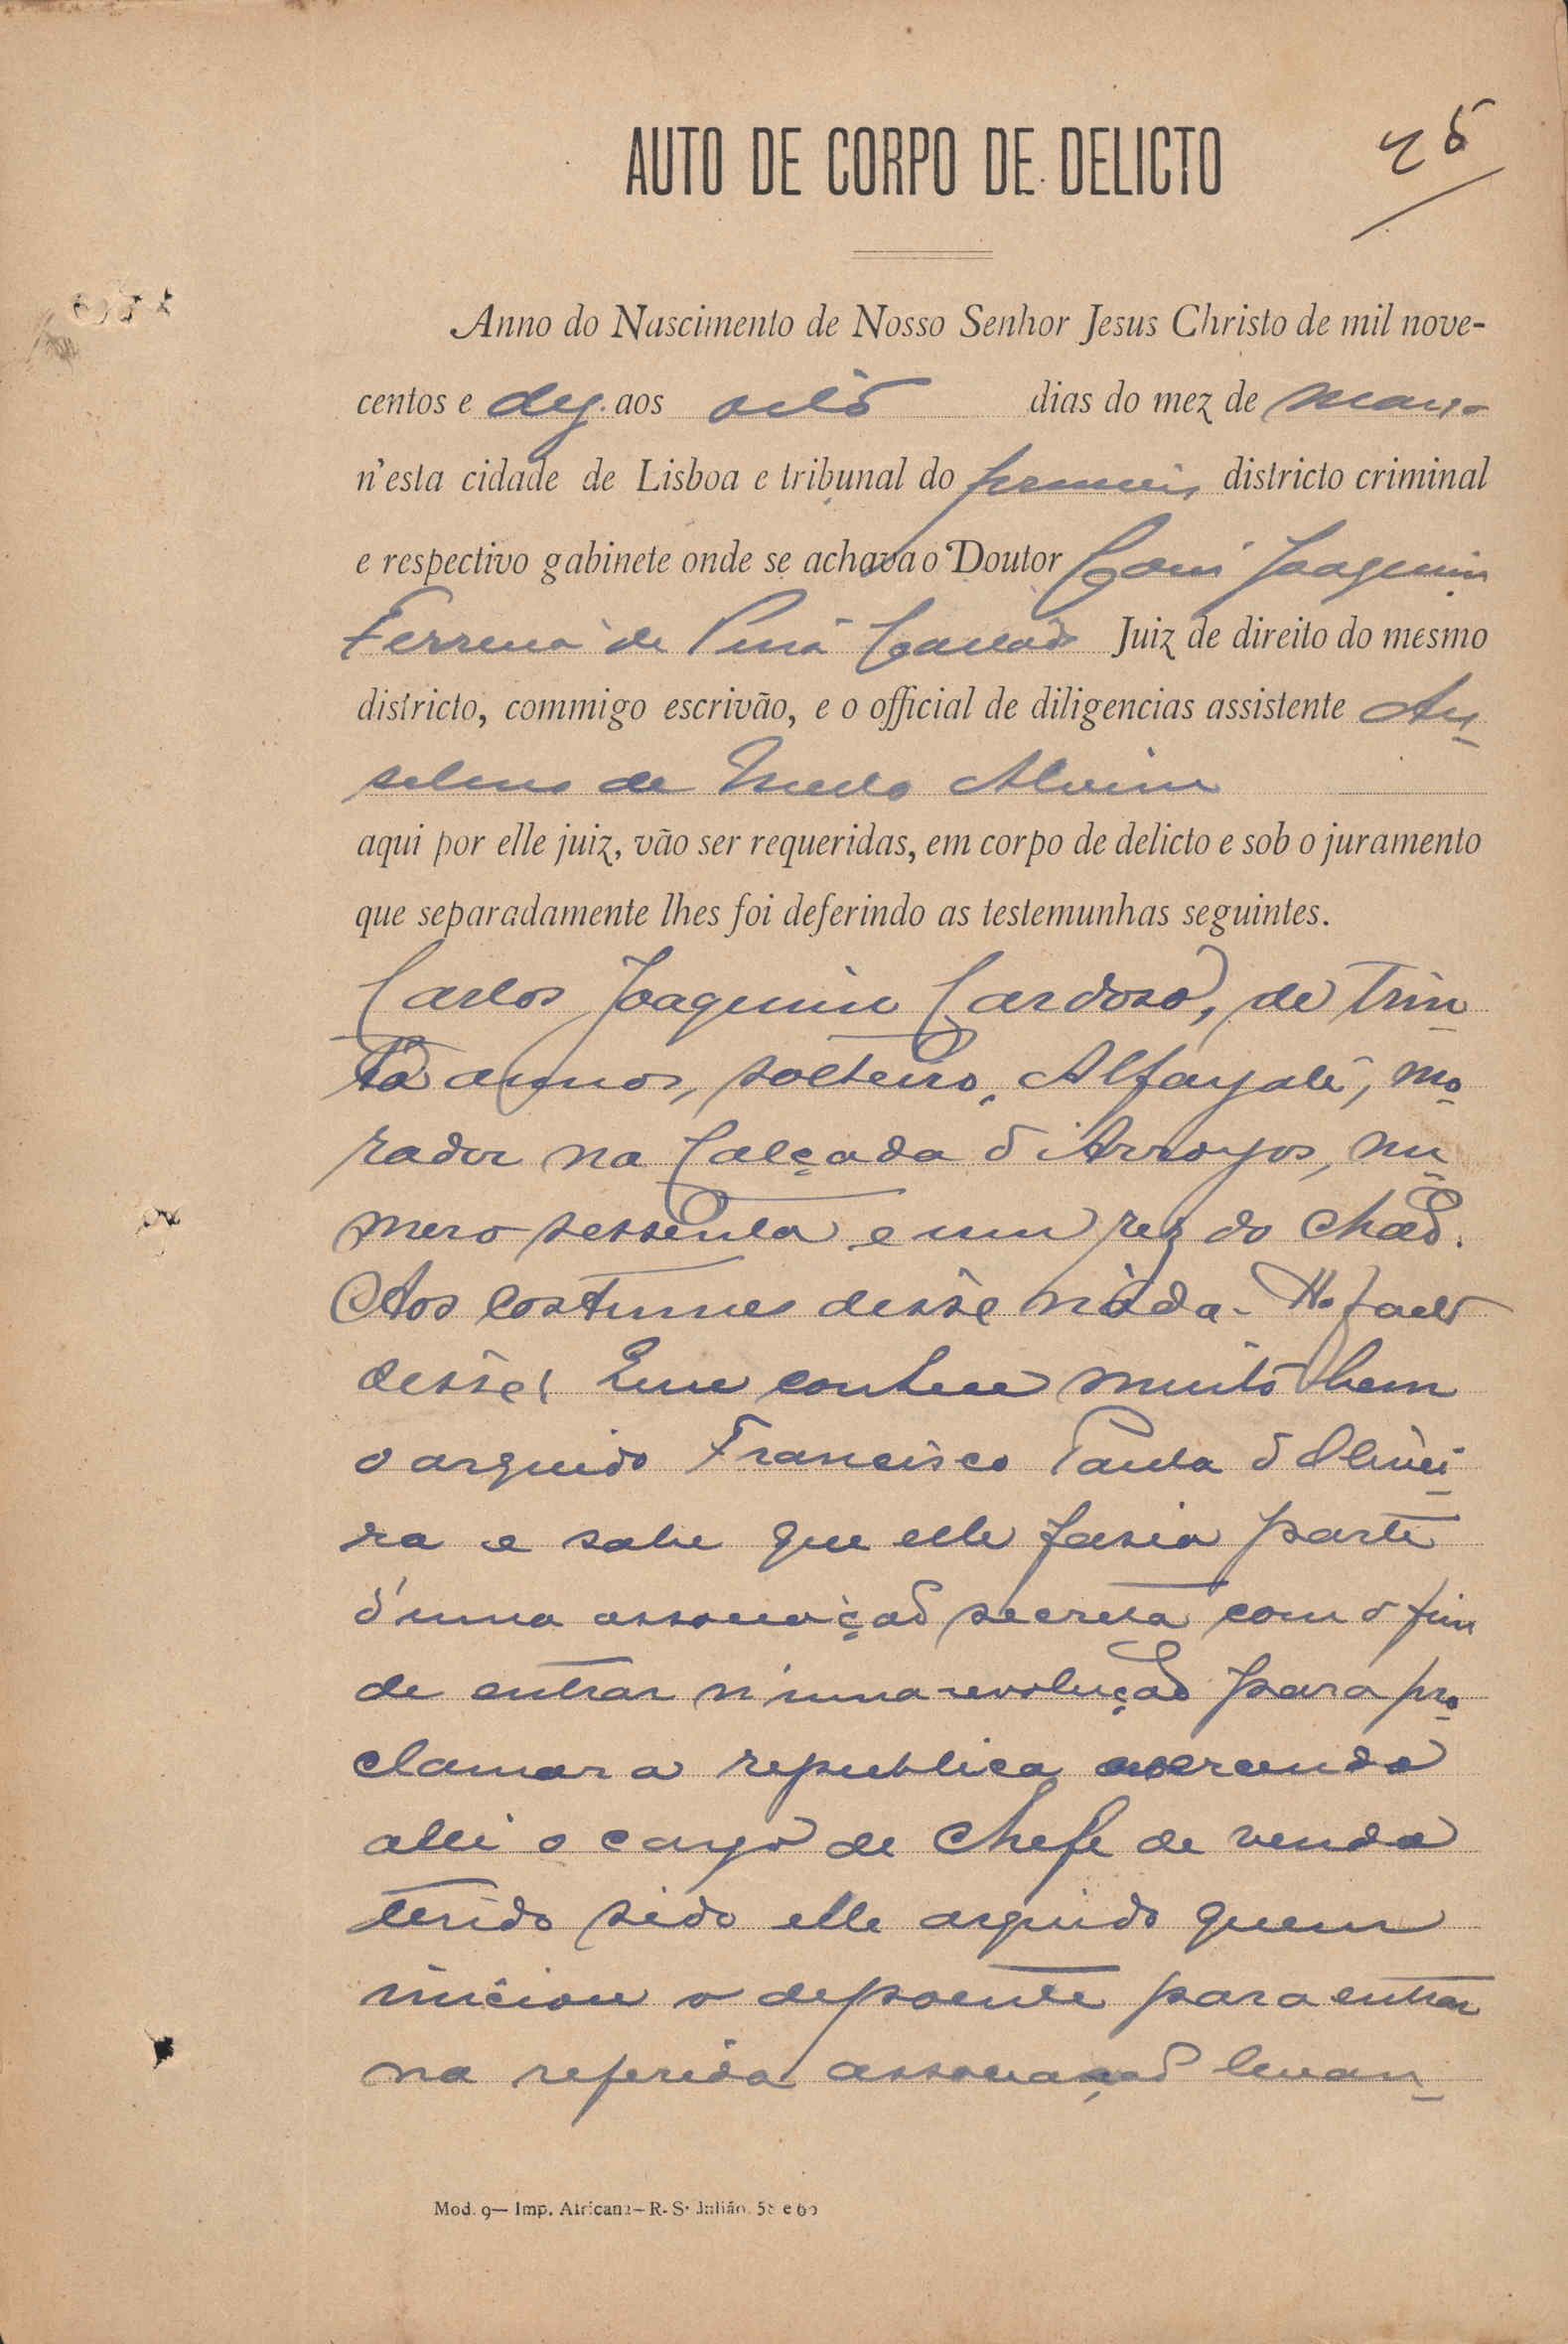 AUTO DE CORPO DE DELICTO
25
Anno do Nascimento de Nosso Senhor Jesus Christo de mil nove-
centos e dez aos oito dias do mez de março
n'esta cidade de Lisboa e tribunal do primeiro districto criminal
e respectivo gabinete onde se achava o Doutor Joaquim
Ferreira de Pina Juiz de direito do mesmo
districto, commigo escrivão, e o official de diligencias assistente An-
selmo de Mello Alvim
aqui por elle juiz, vão ser requeridas, em corpo de delicto e sob o juramento
que separadamente lhes foi deferindo as testemunhas seguintes.
Carlos Joaquim Cardoso, de trin-
ta annos, solteiro, Alfayate, mo-
rador na Calçada d'Arroyos, nu-
mero sessenta e um rez do chão.
Aos costumes disse nada. Ao facto
disse: Que conhece muito bem
o arguido Francisco Paula d'Olivei-
ra e sabe que elle fasia parte
d'uma associação secreta com o fim
de entrar n'uma revolução para pro-
clamar a republica exercendo
alli o cargo de chefe de venda
tendo sido elle arguido quem
iniciou o depoente para entrar
na referida associação levan-
Mod. 9— Imp. Africana—R. S. Julião, 58 e 60